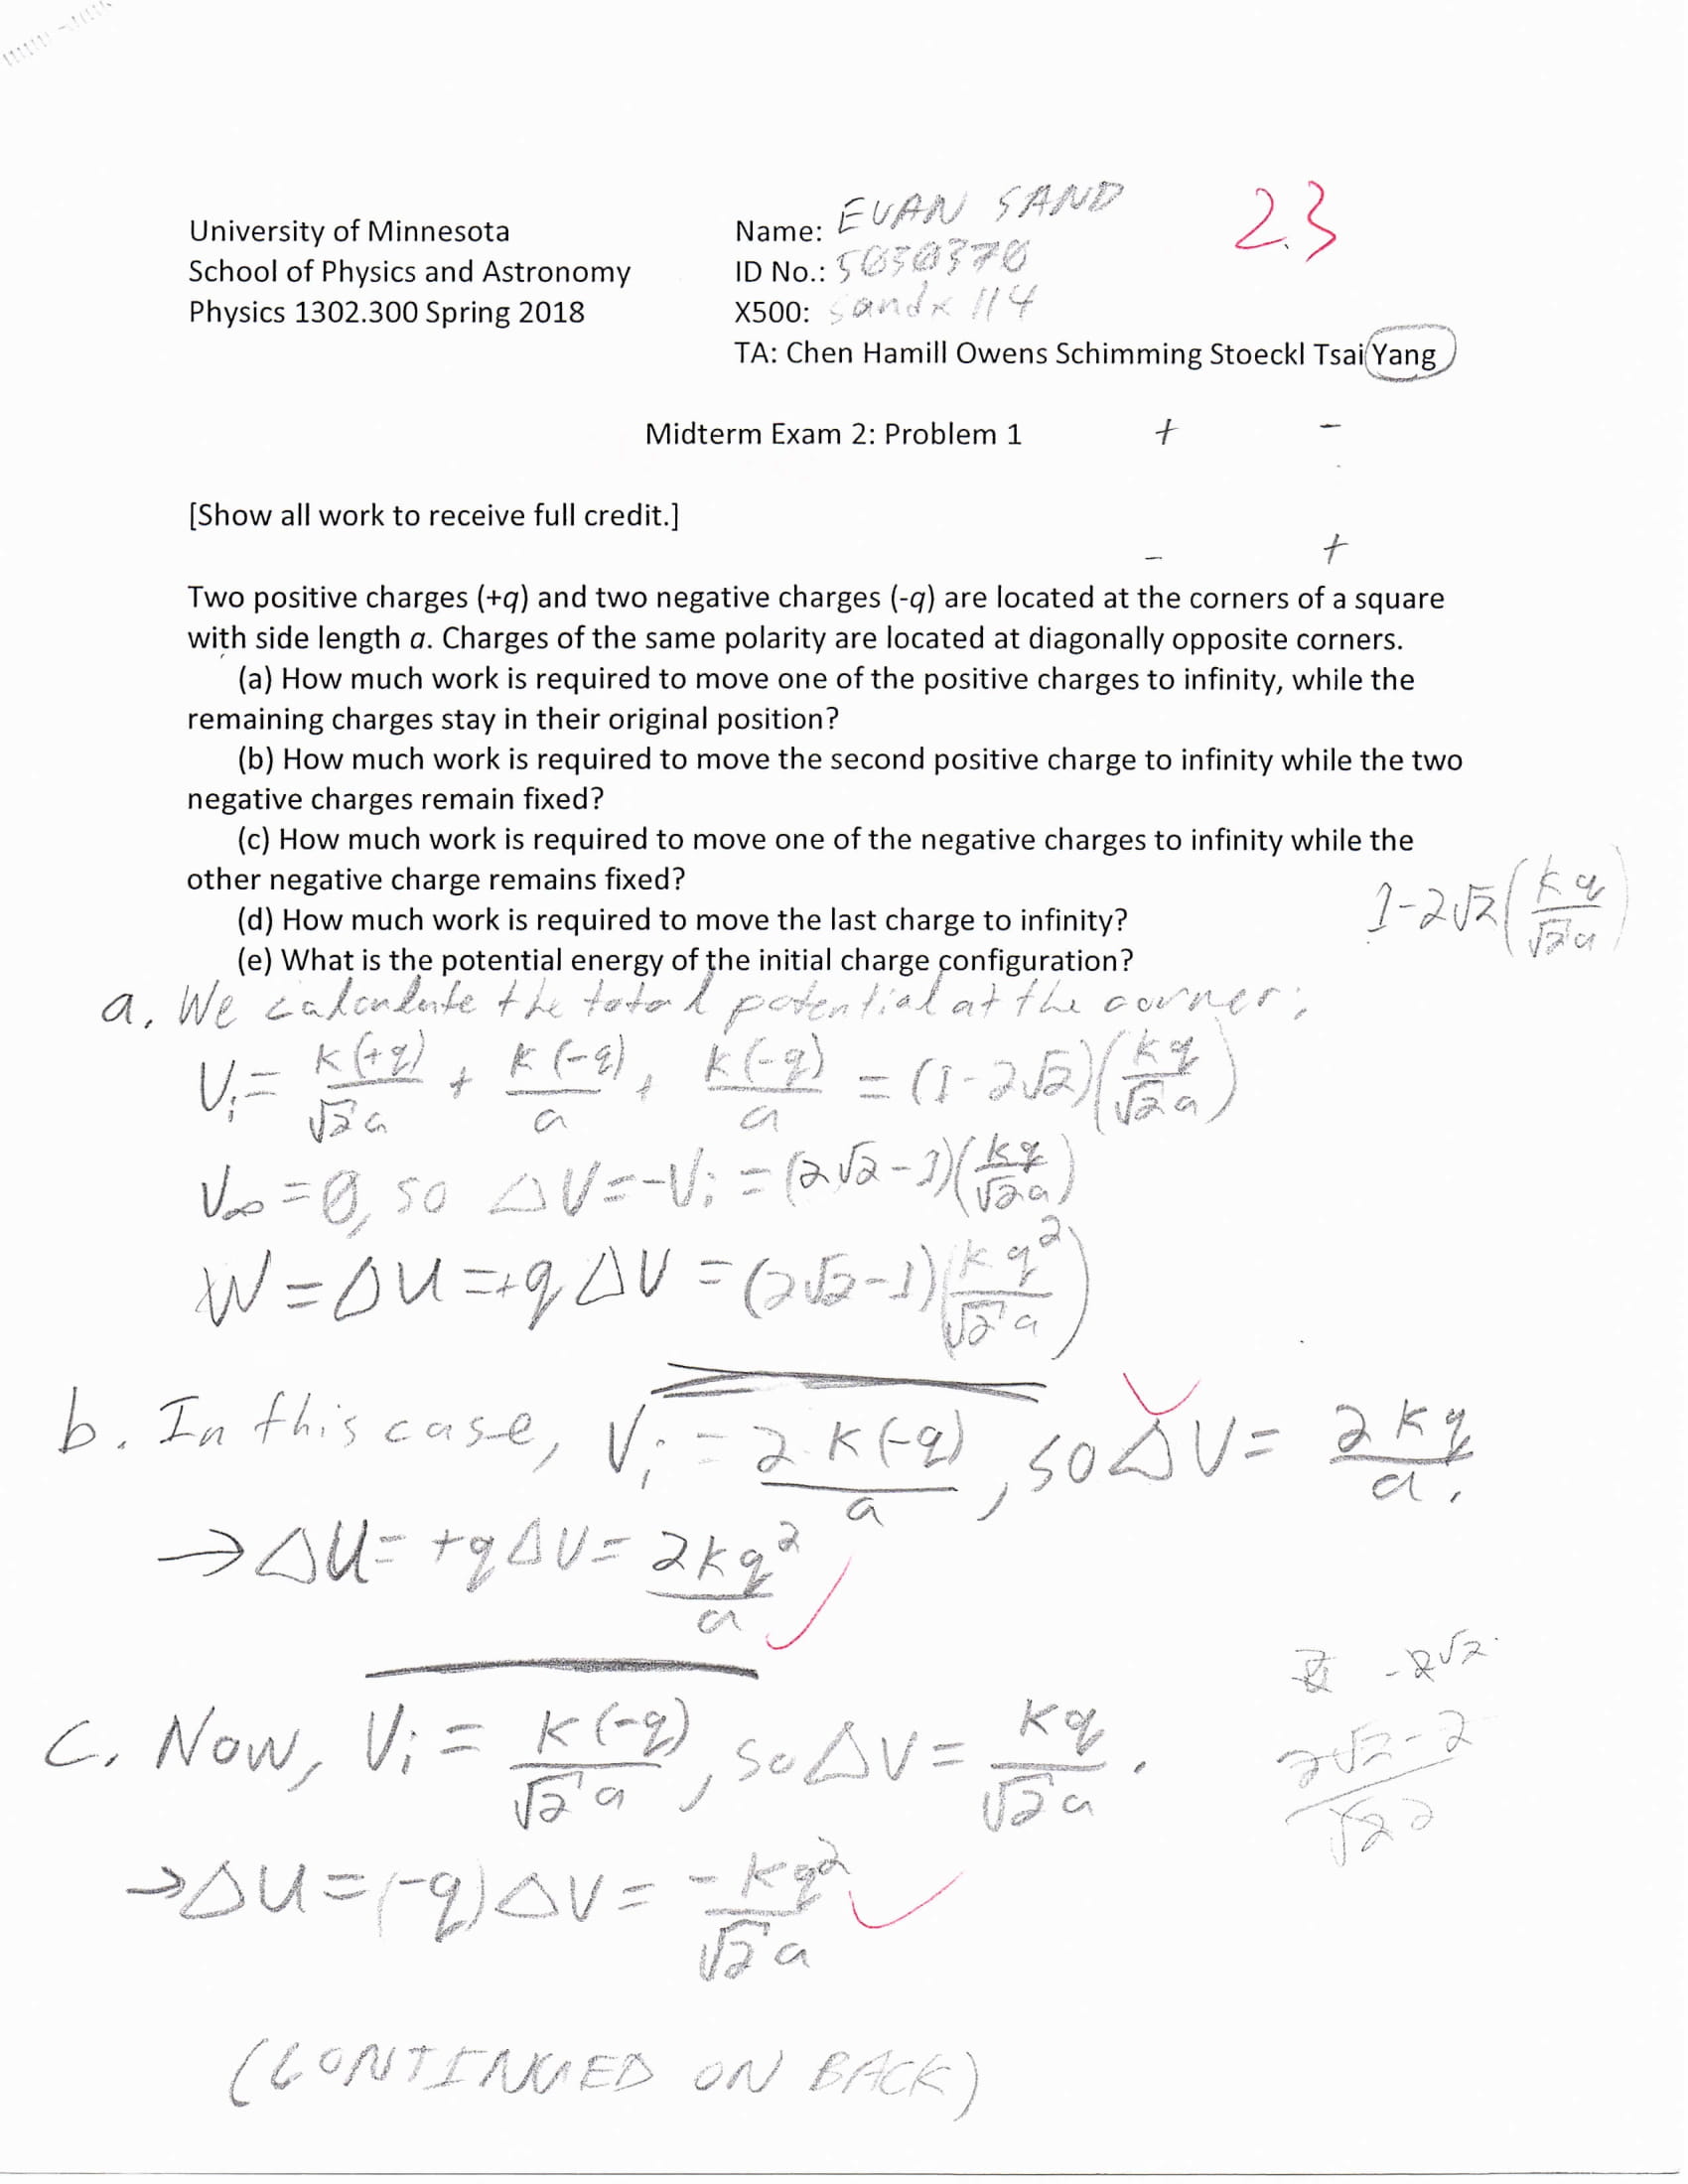 University of Minnesota
School of Physics and Astronomy
Physics 1302.300 Spring 2018
Name: EVAN SAND
ID No.: 5030370
X500: sandx114
TA: Chen Hamill Owens Schimming Stoeckl Tsai Yang
23
Midterm Exam 2: Problem 1
+ -
- +
[Show all work to receive full credit.]
Two positive charges (+q) and two negative charges (-q) are located at the corners of a square
with side length a. Charges of the same polarity are located at diagonally opposite corners.
(a) How much work is required to move one of the positive charges to infinity, while the
remaining charges stay in their original position?
(b) How much work is required to move the second positive charge to infinity while the two
negative charges remain fixed?
(c) How much work is required to move one of the negative charges to infinity while the
other negative charge remains fixed?
(d) How much work is required to move the last charge to infinity?
(e) What is the potential energy of the initial charge configuration?
1-2√2(kq/√2a)
a. We calculate the total potential at the corner:
Vi = k(+q)/√2a + k(-q)/a + k(-q)/a = (1-2√2)(kq/√2a)
V∞ = 0, so ΔV = -Vi = (2√2-1)(kq/√2a)
W = ΔU = +qΔV = (2√2-1)(kq²/√2a)
b. In this case, Vi = 2k(-q)/a, so ΔV = 2kq/a.
→ ΔU = +qΔV = 2kq²/a
c. Now, Vi = k(-q)/√2a, so ΔV = kq/√2a.
-2√2
2√2-2
→ ΔU = (-q)ΔV = -kq²/√2a
(CONTINUED ON BACK)